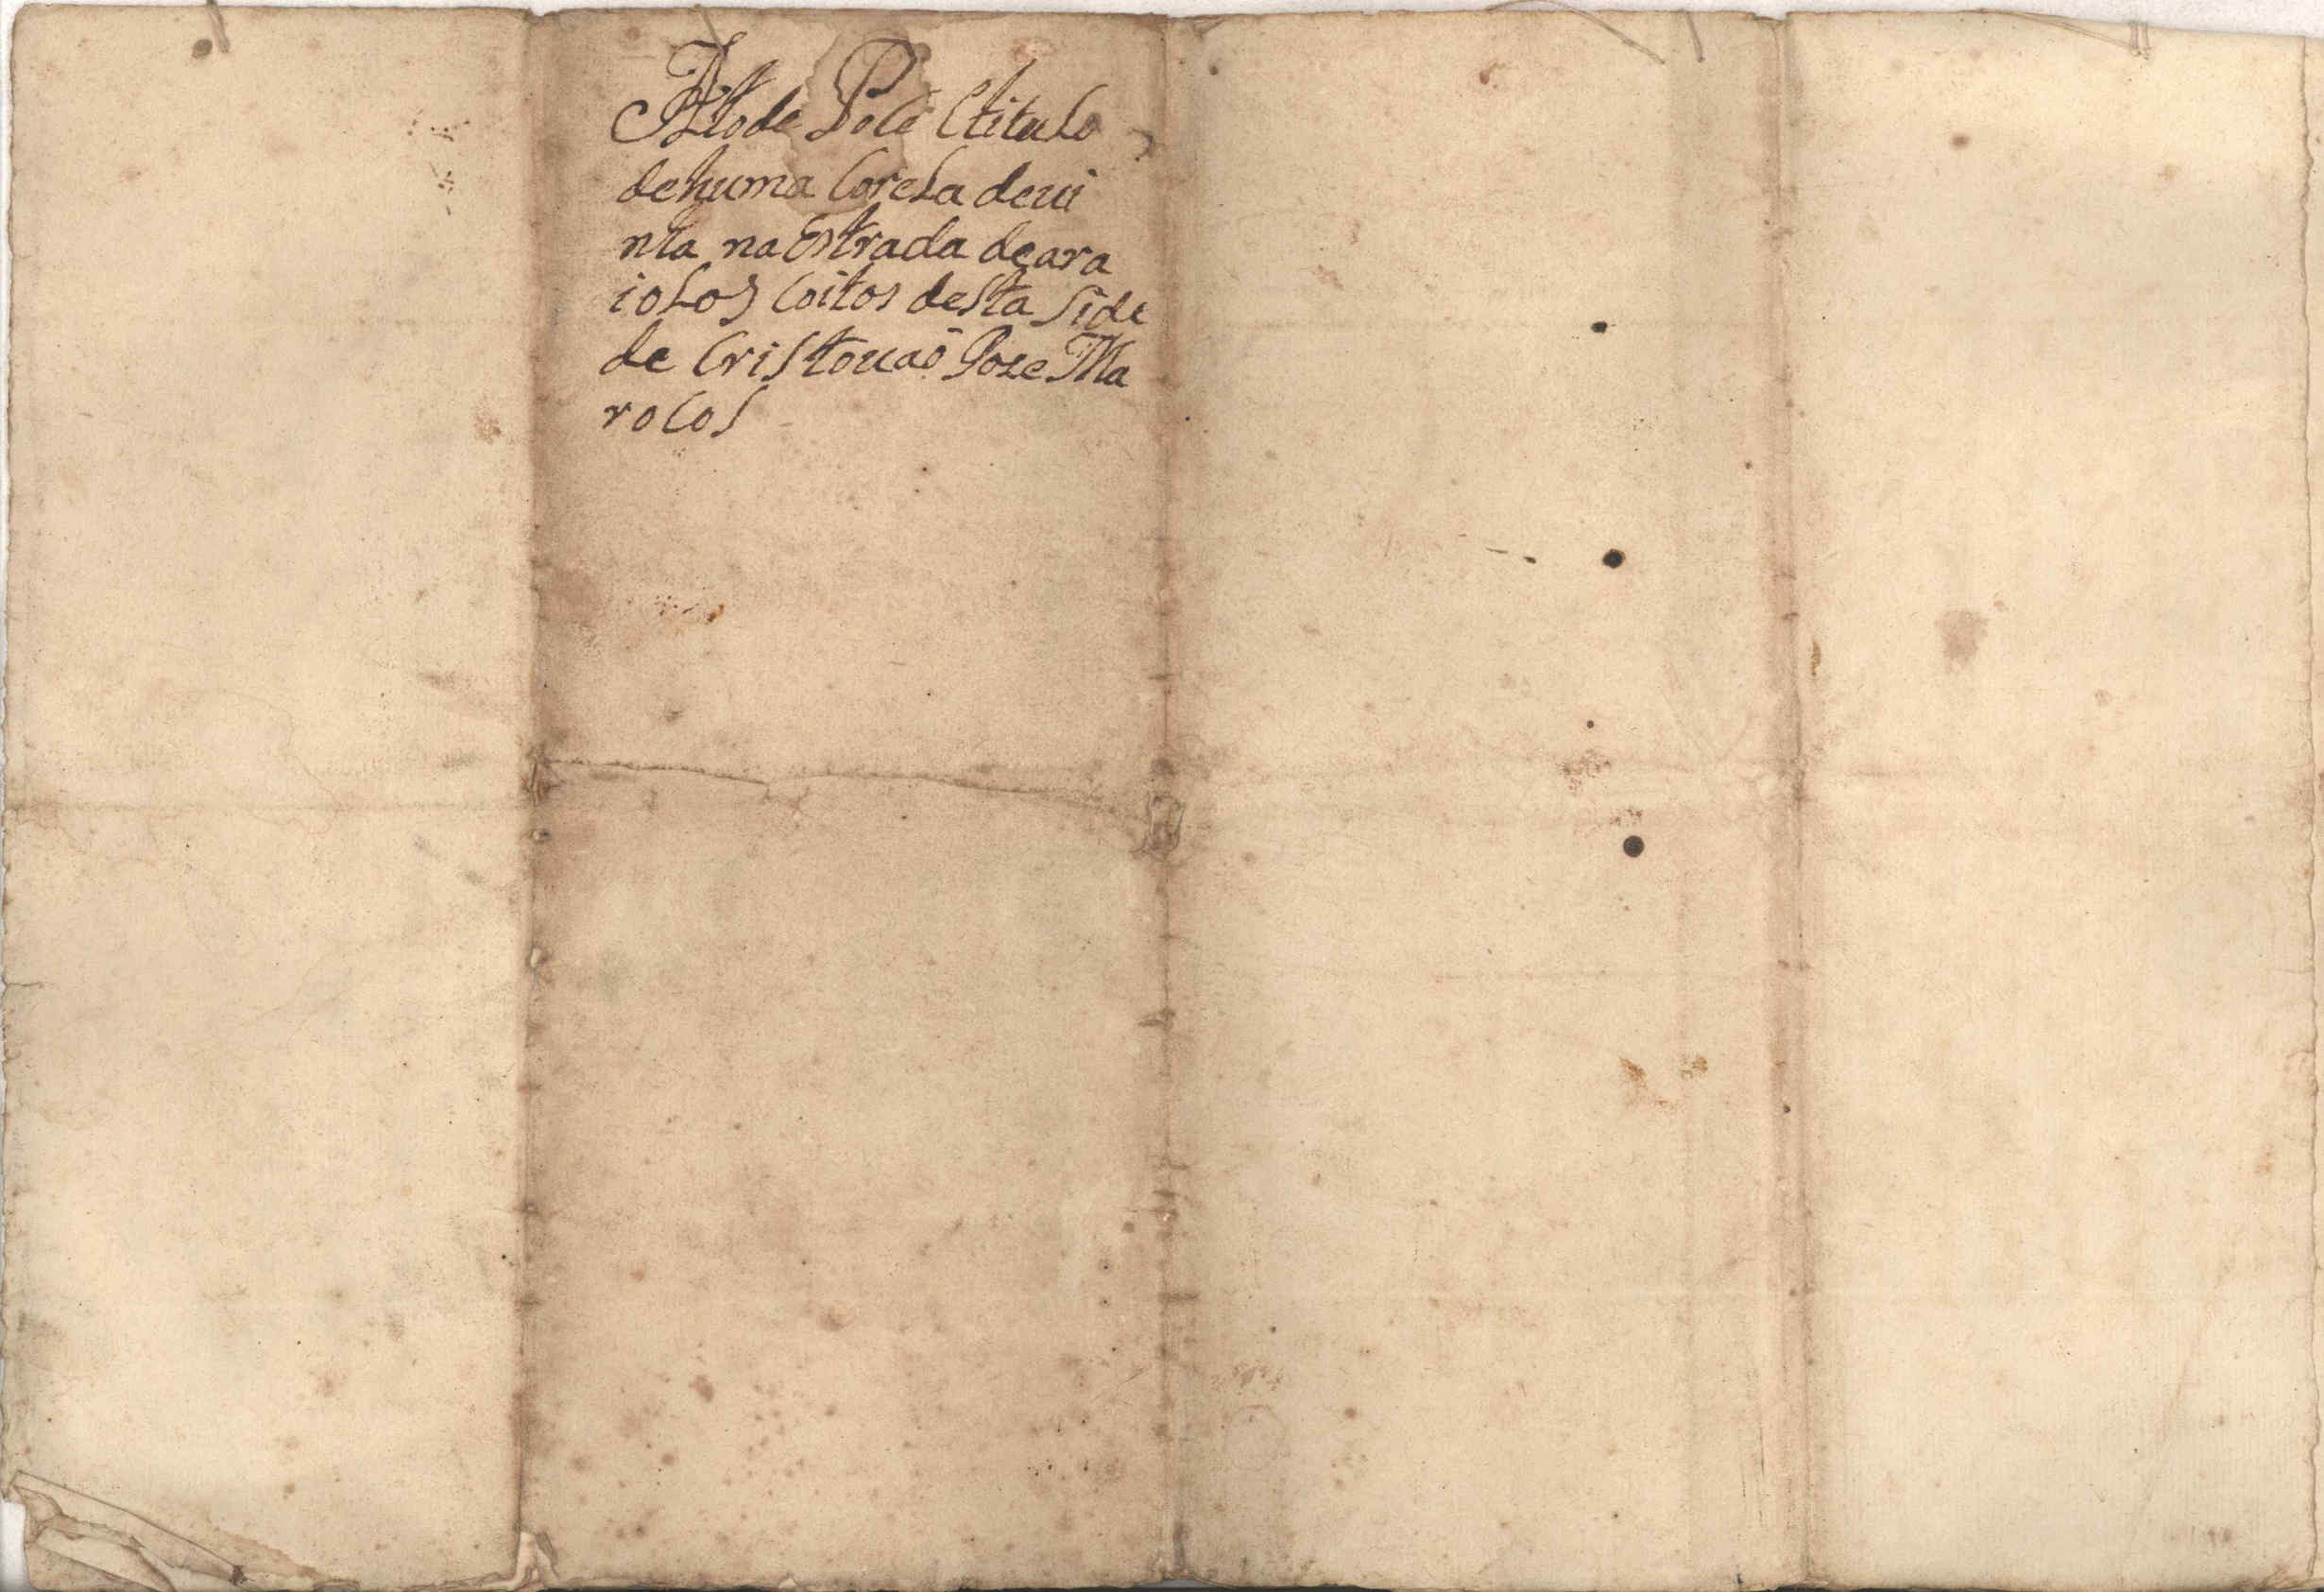 Auto de Poce Etitulo
dehuma Corela deui
nta na Estrada deara
iolos Coitos desta Side
de Cristouaõ Joze Ma
rocos